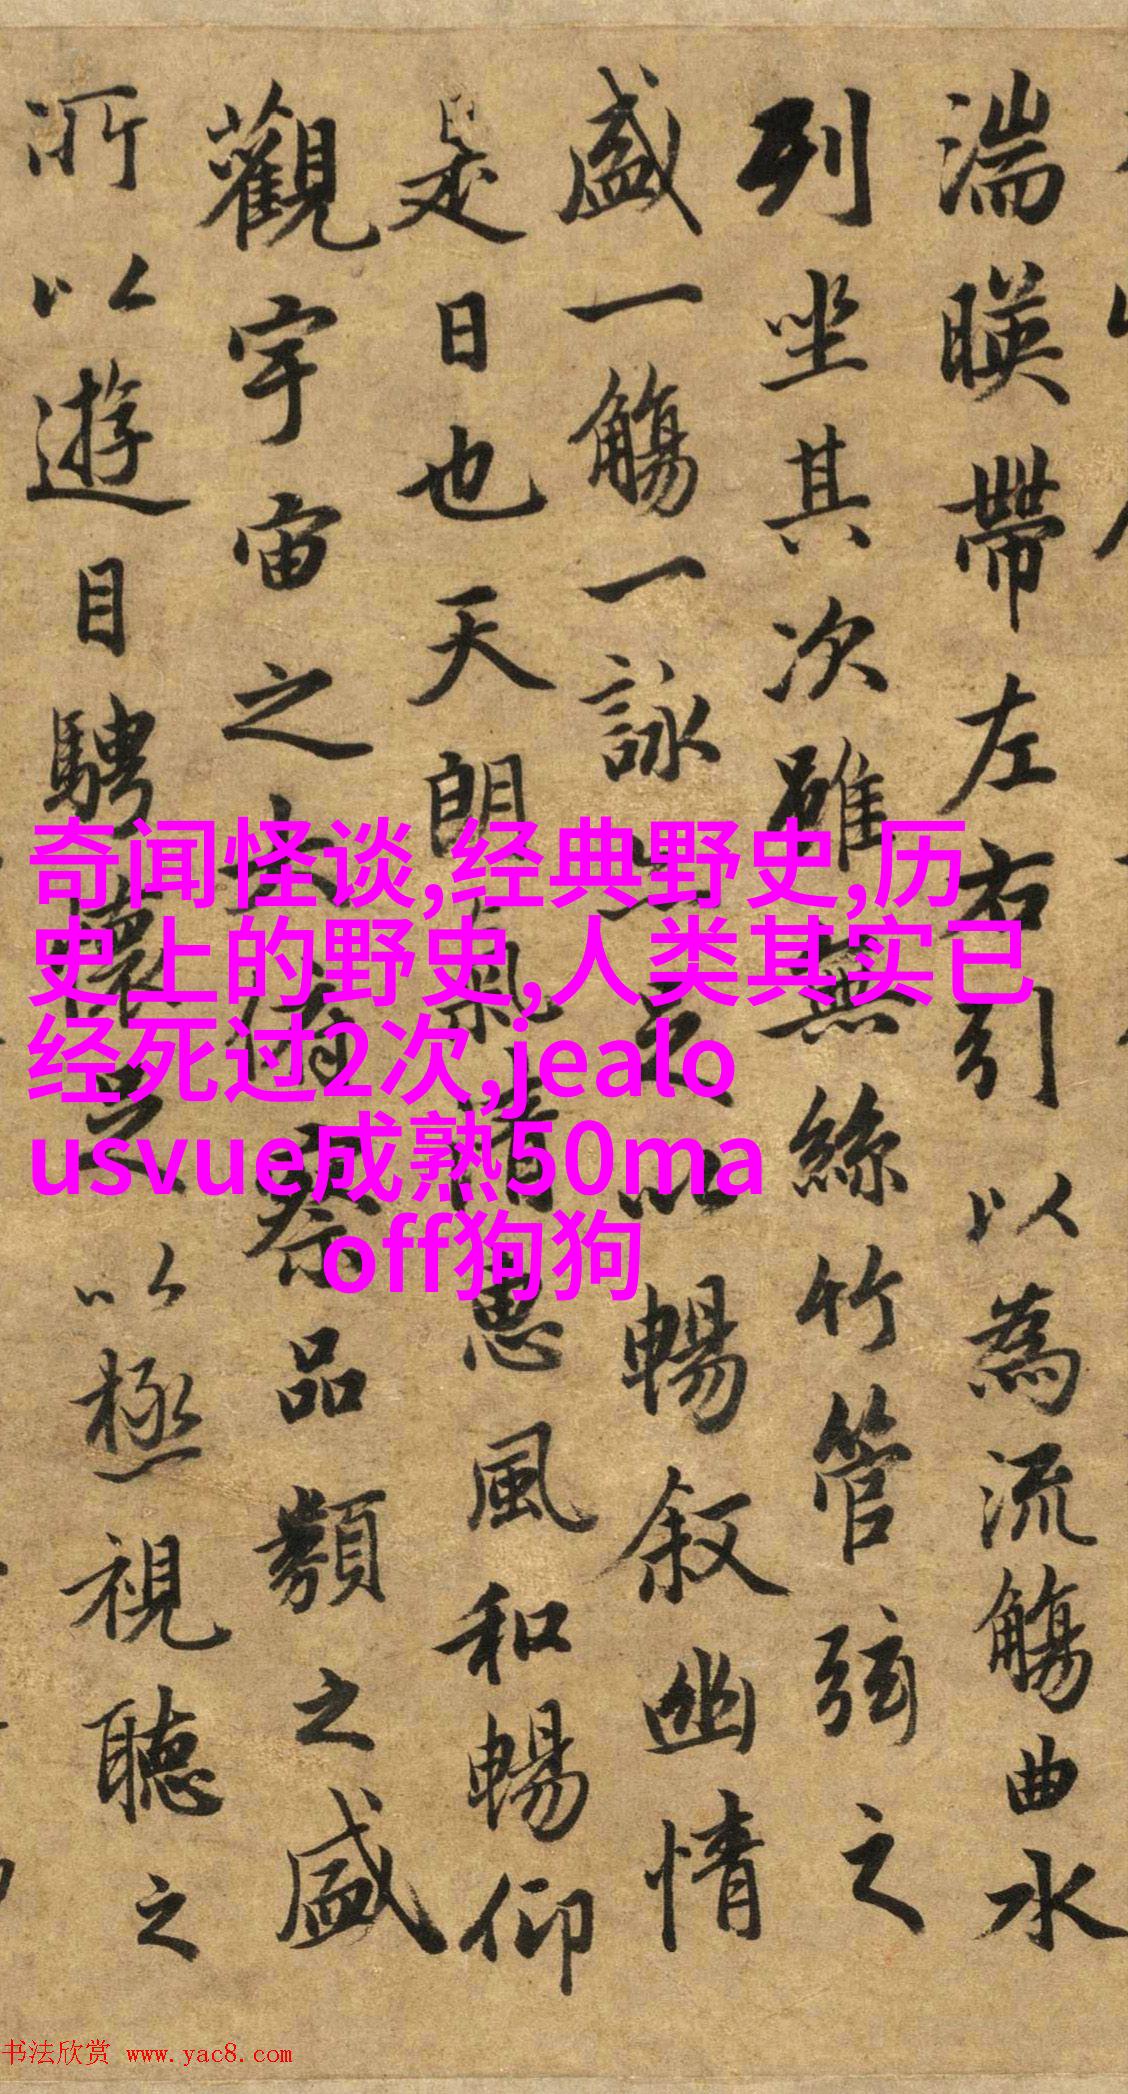 湍暎帶左右引以為流觴曲水
列坐其次雖無絲竹管弦之
盛一觴一詠亦足以暢叙幽情
是日也天朗氣清惠風和暢仰
觀宇宙之大俯察品類之盛
所以遊目騁懷足以極視聽之
奇闻怪谈,经典野史,历
史上的野史,人类其实已
经死过2次,jealo
usvue成熟50ma
off狗狗
书法欣赏 www.yac8.com